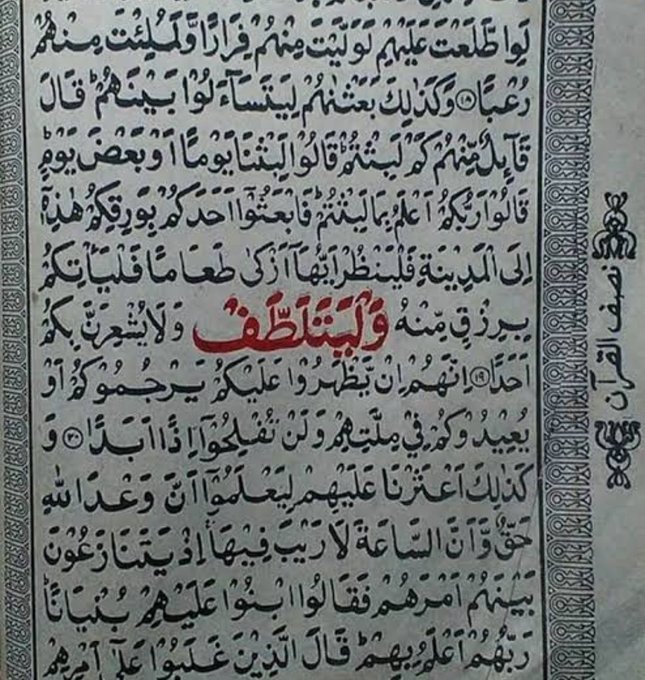 لَوِاطَّلَعْتَ عَلَيْهِمْ لَوَلَّيْتَ مِنْهُمْ فِرَارًا وَّلَمُلِئْتَ مِنْهُمْ
رُعْبًا ۝۱۸ وَكَذٰلِكَ بَعَثْنٰهُمْ لِيَتَسَآءَلُوْا بَيْنَهُمْ ؕ قَالَ
قَآئِلٌ مِّنْهُمْ كَمْ لَبِثْتُمْ ؕ قَالُوْا لَبِثْنَا يَوْمًا اَوْ بَعْضَ يَوْمٍ ؕ
قَالُوْا رَبُّكُمْ اَعْلَمُ بِمَا لَبِثْتُمْ ؕ فَابْعَثُوْۤا اَحَدَكُمْ بِوَرِقِكُمْ هٰذِهٖۤ
اِلَى الْمَدِيْنَةِ فَلْيَنْظُرْ اَيُّهَاۤ اَزْكٰى طَعَامًا فَلْيَاْتِكُمْ
بِرِزْقٍ مِّنْهُ وَلْيَتَلَطَّفْ وَلَا يُشْعِرَنَّ بِكُمْ
اَحَدًا ۝۱۹ اِنَّهُمْ اِنْ يَّظْهَرُوْا عَلَيْكُمْ يَرْجُمُوْكُمْ اَوْ
يُعِيْدُوْكُمْ فِيْ مِلَّتِهِمْ وَلَنْ تُفْلِحُوْۤا اِذًا اَبَدًا ۝۲۰ وَ
كَذٰلِكَ اَعْثَرْنَا عَلَيْهِمْ لِيَعْلَمُوْۤا اَنَّ وَعْدَ اللّٰهِ
حَقٌّ وَّاَنَّ السَّاعَةَ لَا رَيْبَ فِيْهَا ۚ اِذْ يَتَنَازَعُوْنَ
بَيْنَهُمْ اَمْرَهُمْ فَقَالُوا ابْنُوْا عَلَيْهِمْ بُنْيَانًا ؕ
رَبُّهُمْ اَعْلَمُ بِهِمْ ؕ قَالَ الَّذِيْنَ غَلَبُوْا عَلٰۤى اَمْرِهِمْ
نصف القرآن